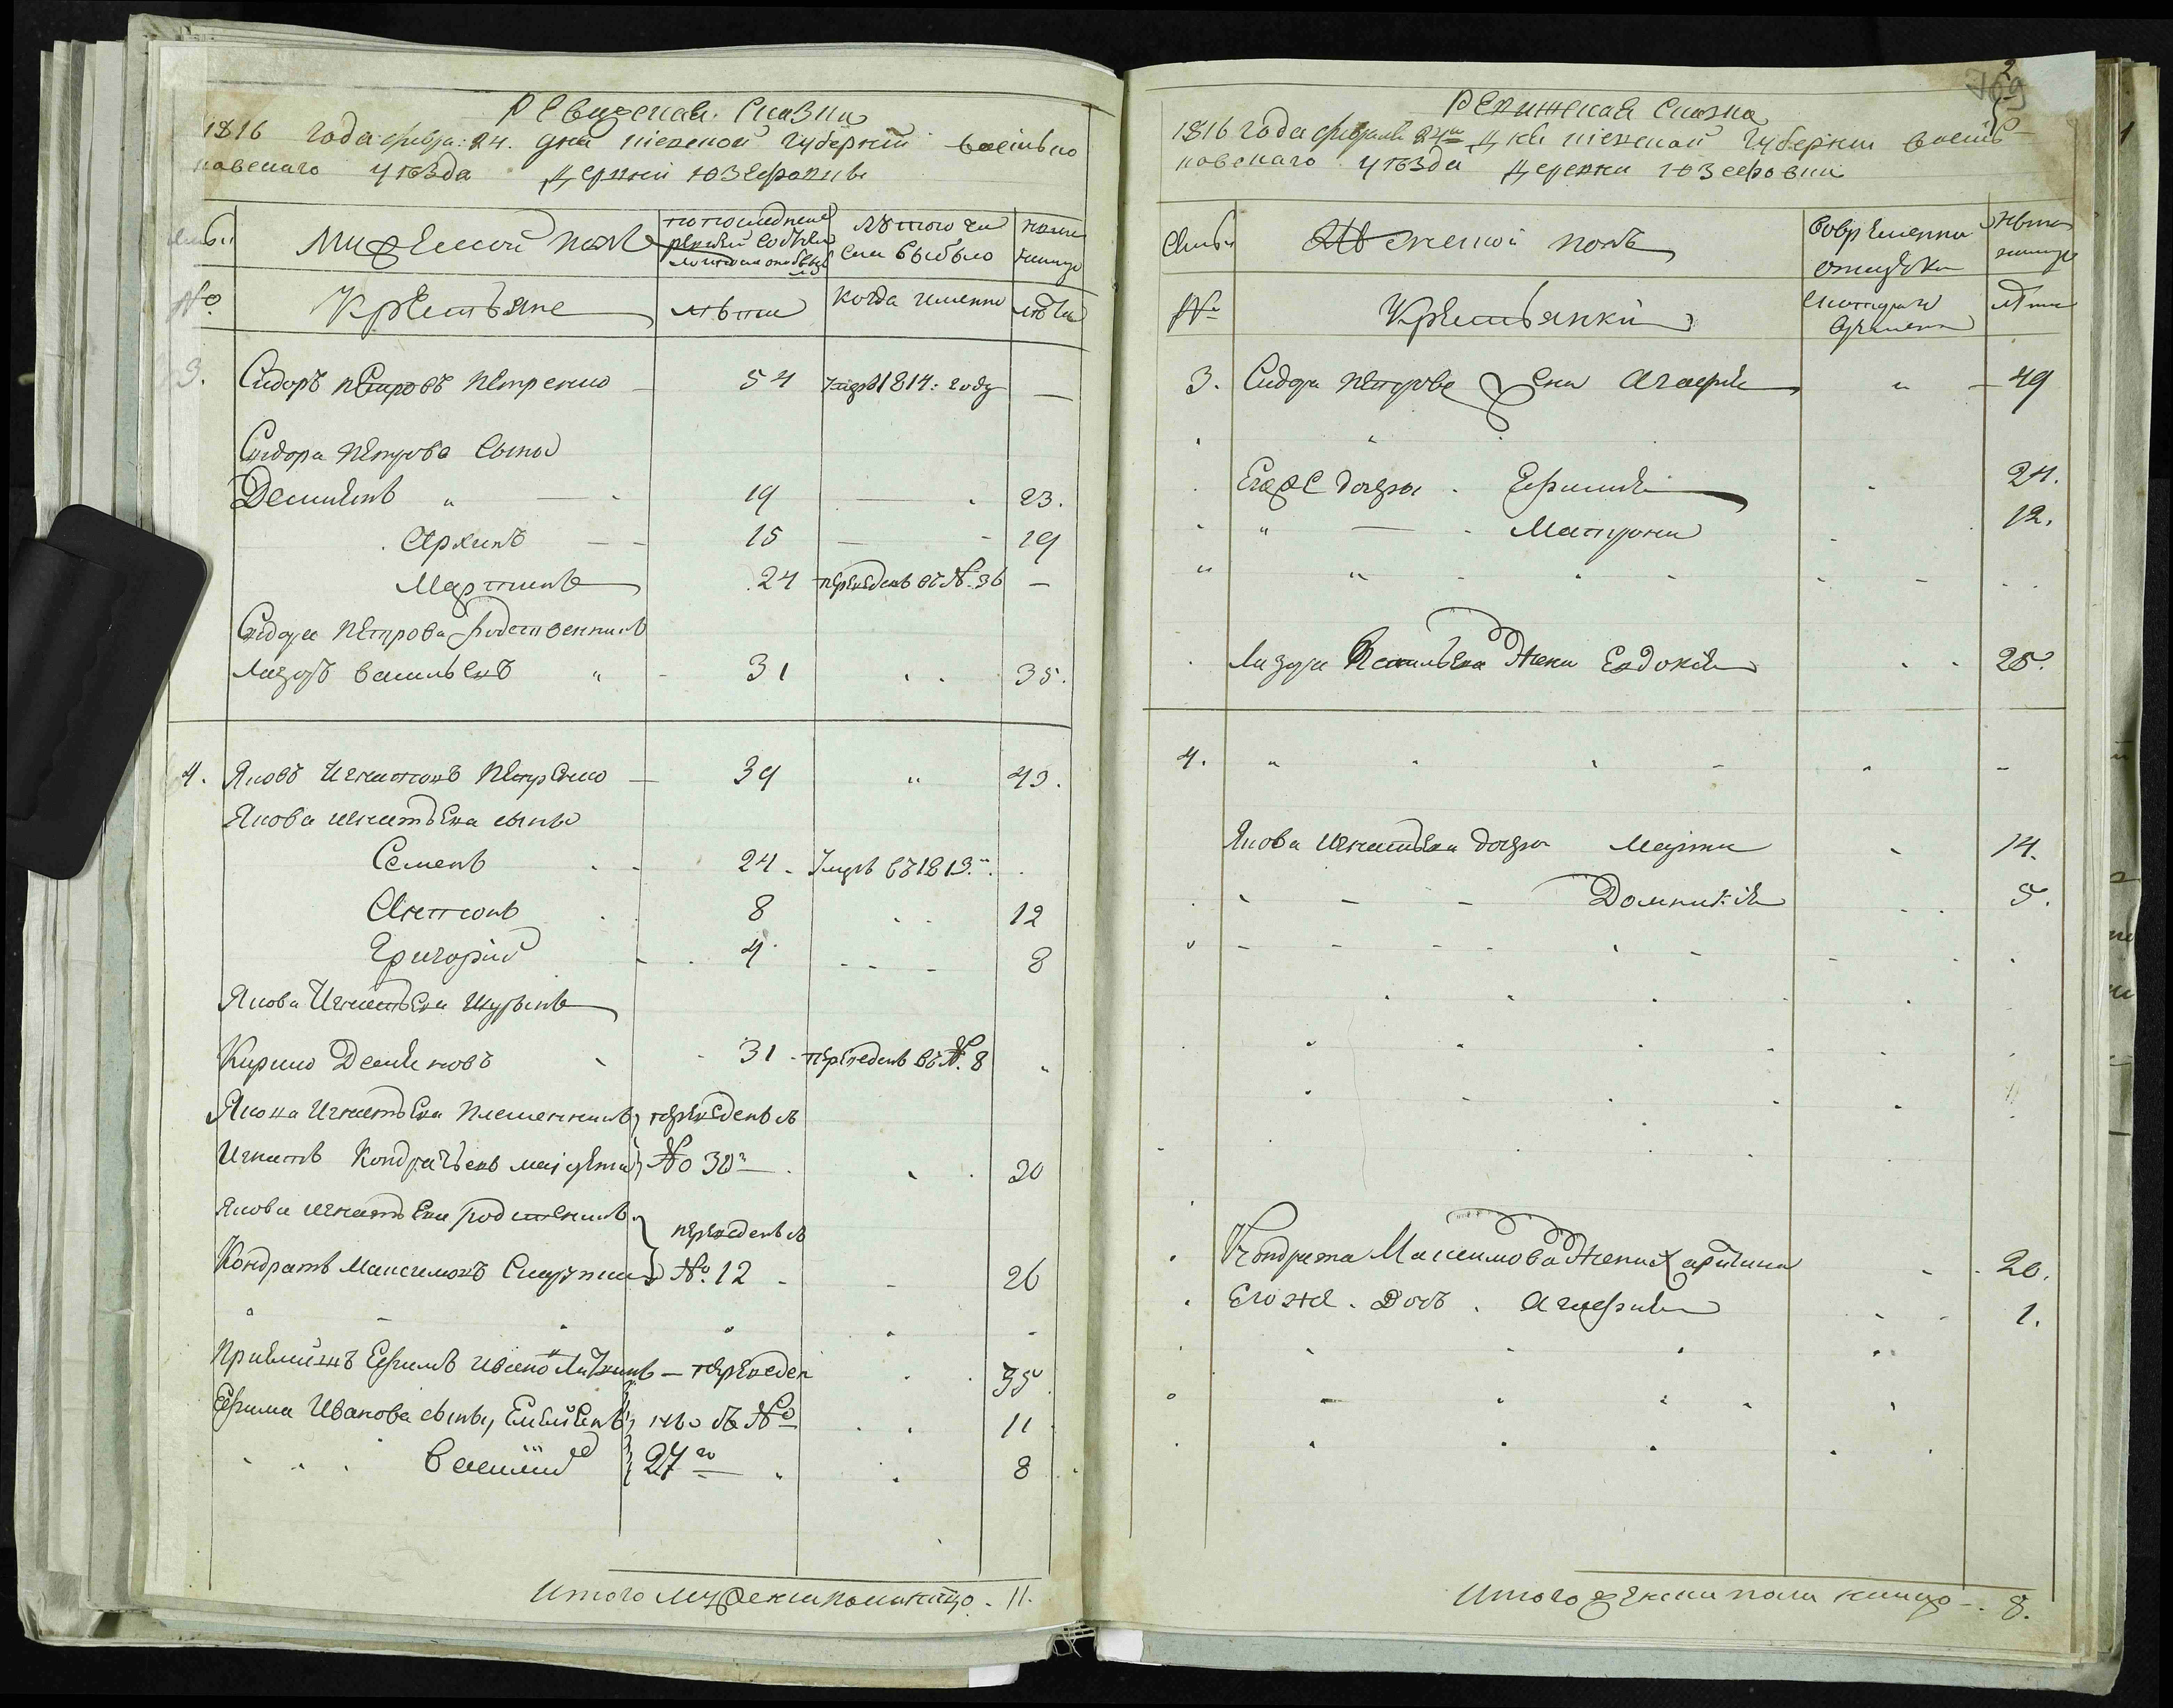 Ревижская Сказка
1816 года февра: 24. дня Киевской Губернии Василько
ковскаго уезда Деревни Юзефовки
Семьи
Мужеской полъ
по последней ревизии состояло
Изъ того числа выбыло
ныне на лицо
№
Крестьяне
лѣта
когда именно
лѣта
3. Сидоръ Петровъ Петренко — 54 умре 1814: году —
Сидора Петрова Сыны
Демианъ " — 19 — 23.
Архипъ — 15 — 19
Мартинъ 24 переведенъ въ №. 36 —
Сидора Петрова родственникъ
Лазоръ Васильевъ " - 31 35.
4. Яковъ Игнатовъ Петренко — 39 " 43.
Якова Игнатьева сыны
Семенъ 24 - Умре въ 1813.
Антонъ 8 12
Григорий 4 - - - 8
Якова Игнатьева Шуринъ
Кирило Демяновъ - 31 - переведенъ въ №. 8
Якова Игнатьева племенникъ } переведенъ съ
Игнатъ Кондратьевъ } № 30 20
Якова Игнатьева родственникъ }
переведенъ съ
Кондратъ Максимовъ } №. 12 - - 26
Ефимъ — переведен 35
Ефима Ивановa сыны, съ № 11
Василий } 27го 8
Итого мужеска пола налицо - 11.
169
Ревижская Сказка
1816 года февраля 24го Дня Киевской Губернии Василь
ковскаго уезда Деревни Юзефовки
Семьи
Женской полъ
Во временной отлучке
Ныне на лицо
№
Крестьянки
С котораго времени
Лѣта
3. Сидора Петрова Жена Агафия " — 49
Его же дочери - Ефимия 24.
" — - Матрона 12.
Лазора Васильева Жена Евдокия 25.
4. " - -
Якова Игнатьева дочери Марта 14.
- - Домникия 5.
Кондрата Максимова Жена Харитина - 20.
Его же - Дочь - Агафия 1.
Итого женска пола налицо - 8.